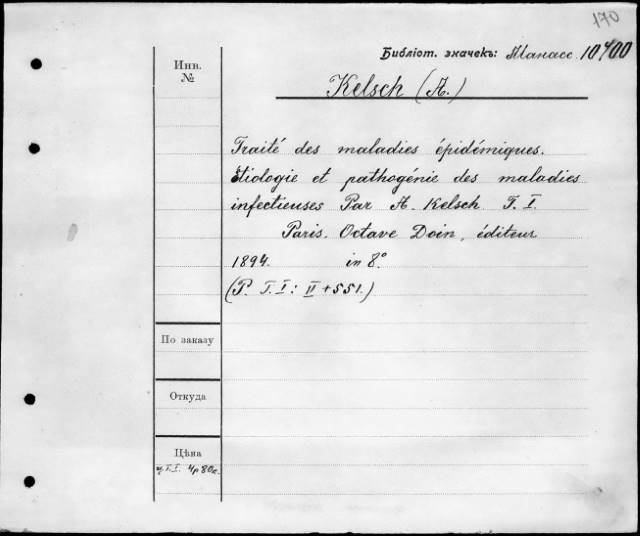 170
Библіот. значекъ: Манасс. 10400
Инв.
№
Kelsch (A.)
Traité des maladies épidémiques.
Etiologie et pathogénie des maladies
infectieuses Par A. Kelsch T. I.
Paris. Octave Doin, éditeur
1894. in 8°.
(P. T. I: II + 551.)
По заказу
Откуда
Цѣна
T. I. 4р 80к.